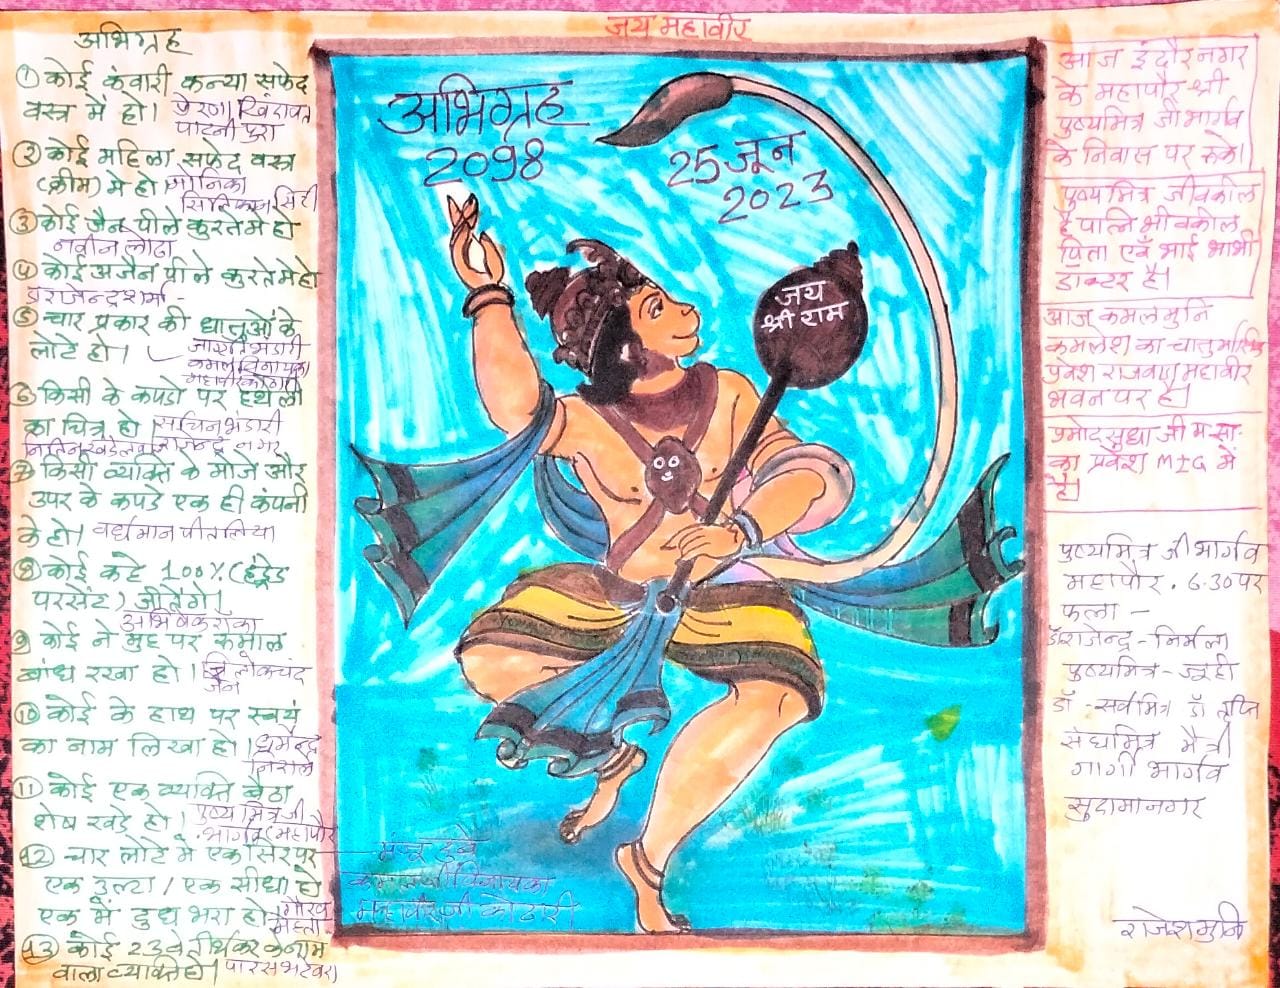 जय महावीर
अभिग्रह
① कोई कंवारी कन्या सफेद
वस्त्र में हो।
पाटनीपुरा
② कोई महिला सफेद वस्त्र
(क्रीम) में हो। मोनिका
सिलिकान सिटी
③ कोई जैन पीले कुरते मे हो
नवीन लोढा
④ कोई अजैन पीले कुरते मे हो
राजेन्द्र शर्मा -
⑤ चार प्रकार की धातुओं के
लोटे हो।
⑥ किसी के कपडो पर हथेली
का चित्र हो। सचिन भंडारी
राजेन्द्र नगर
⑦ किसी व्यक्ति के मोजे और
उपर के कपडे एक ही कंपनी
के हो। वर्धमान पीतलिया
⑧ कोई कहे 100% (हंड्रेड
परसेंट) जीतेंगे।
अभिषेक रांका
⑨ कोई ने मुह पर रुमाल
बांध रखा हो। त्रिलोकचंद
जैन
⑩ कोई के हाथ पर स्वयं
का नाम लिखा हो। धर्मेन्द्र
⑪ कोई एक व्यक्ति बैठा
शेष खडे हो। पुष्यमित्रजी
भार्गव (महापौर
⑫ चार लोटे में एक सिर पर
एक उल्टा / एक सीधा हो
एक में दुध भरा हो गौरव
मेहता
मंजू दुबे
कमलजी विनायका
महावीरजी कोठारी
⑬ कोई 23वे तीर्थंकर के नाम
वाला व्यक्ति हो। पारस भटेवरा
अभिग्रह
2098
25 जून
2023
जय
श्री राम
आज इंदौर नगर
के महापौर श्री
पुष्यमित्र जी भार्गव
के निवास पर रुके।
पुष्यमित्र जी वकील
है पत्नि भी वकील
पिता एवँ भाई भाभी
डॉक्टर है।
आज कमलमुनि
कमलेश का चातुर्मासिक
प्रवेश राजवाडा महावीर
भवन पर है।
प्रमोदसुधा जी म.सा.
का प्रवेश MIG में
है।
पुष्यमित्र जी भार्गव
महापौर. 6.30 पर
फला -
डॉ राजेन्द्र - निर्मला
पुष्यमित्र - जूही
डॉ - सर्वमित्र डॉ तृप्ति
संघमित्र मैत्री
गार्गी भार्गव
सुदामानगर
राजेशमुनि